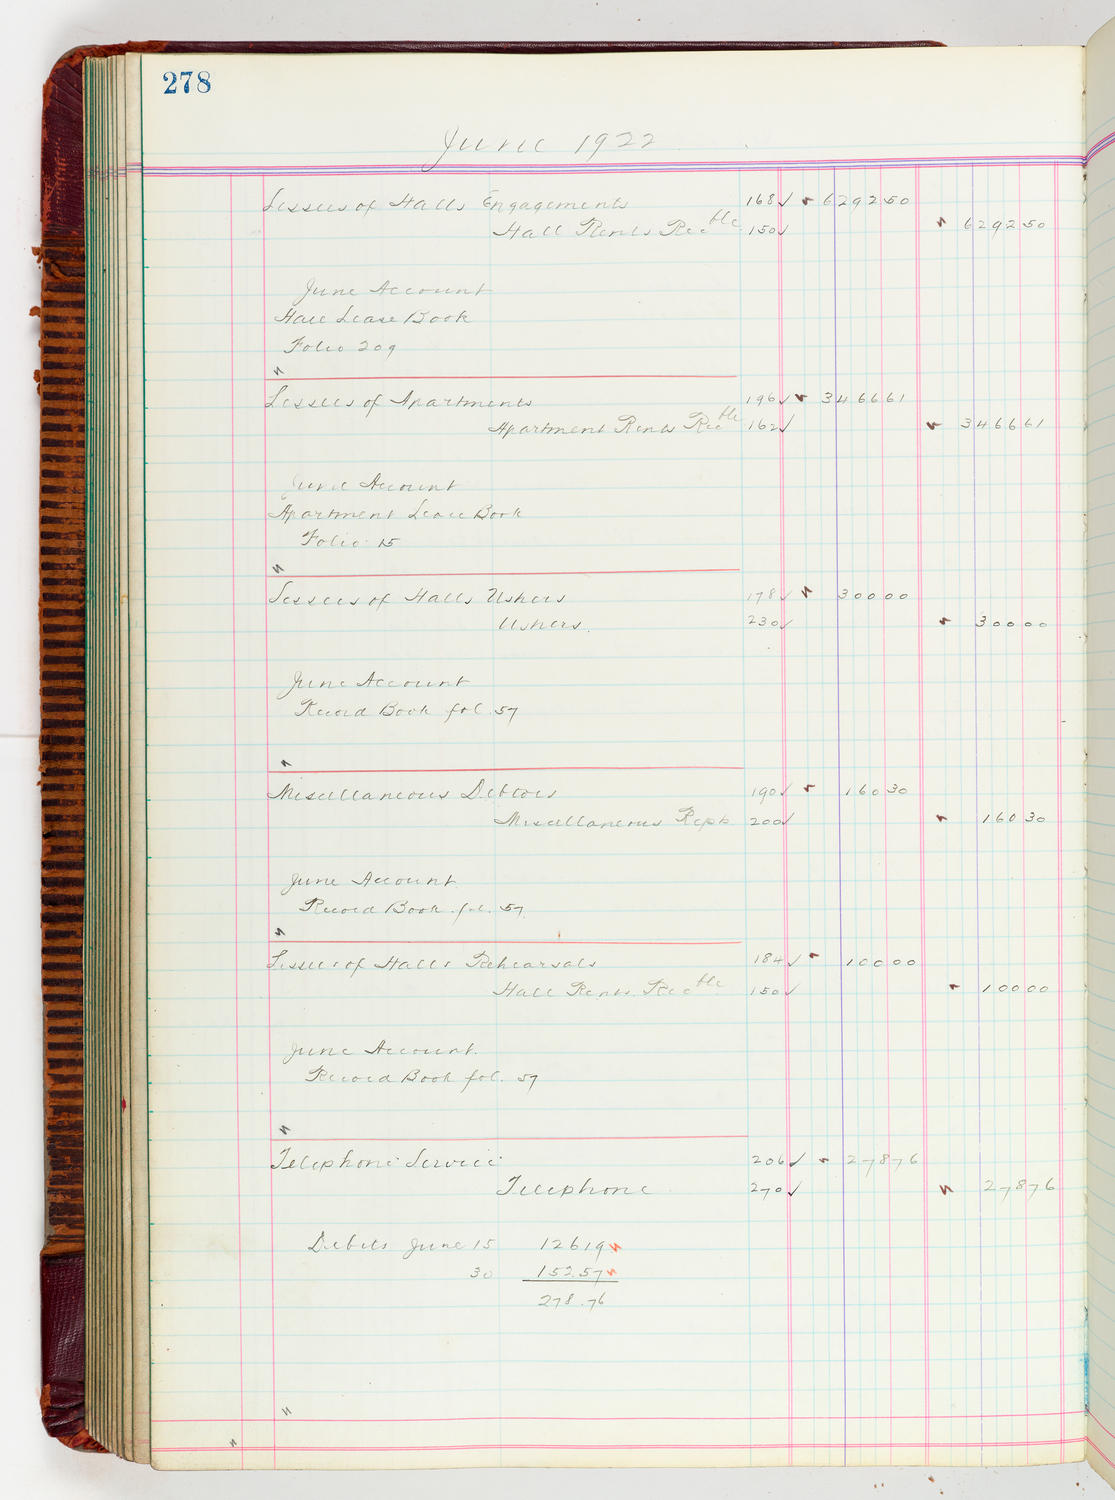 278
June 1922
Lessees of Halls Engagements 168✓ 629250
Hall Rents Recble 150✓ 629250
June Account
Hall Lease Book
Folio 209
Lessees of Apartments 196✓ 346661
Apartment Rents Recble 162✓ 346661
June Account
Apartment Lease Book
Folio 15
Lessees of Halls Ushers 178✓ 30000
Ushers. 230✓ 30000
June Account
Record Book fol. 57
Miscellaneous Debtors 190✓ 16030
Miscellaneous Repts 200✓ 16030
June Account
Record Book fol. 57
Lessees of Halls Rehearsals 184✓ 10000
Hall Rents Recble 150✓ 10000
June Account.
Record Book fol. 57
Telephone Service 206✓ 27876
Telephone 270✓ 27876
Debits June 15 12619
30 152.57
278.76